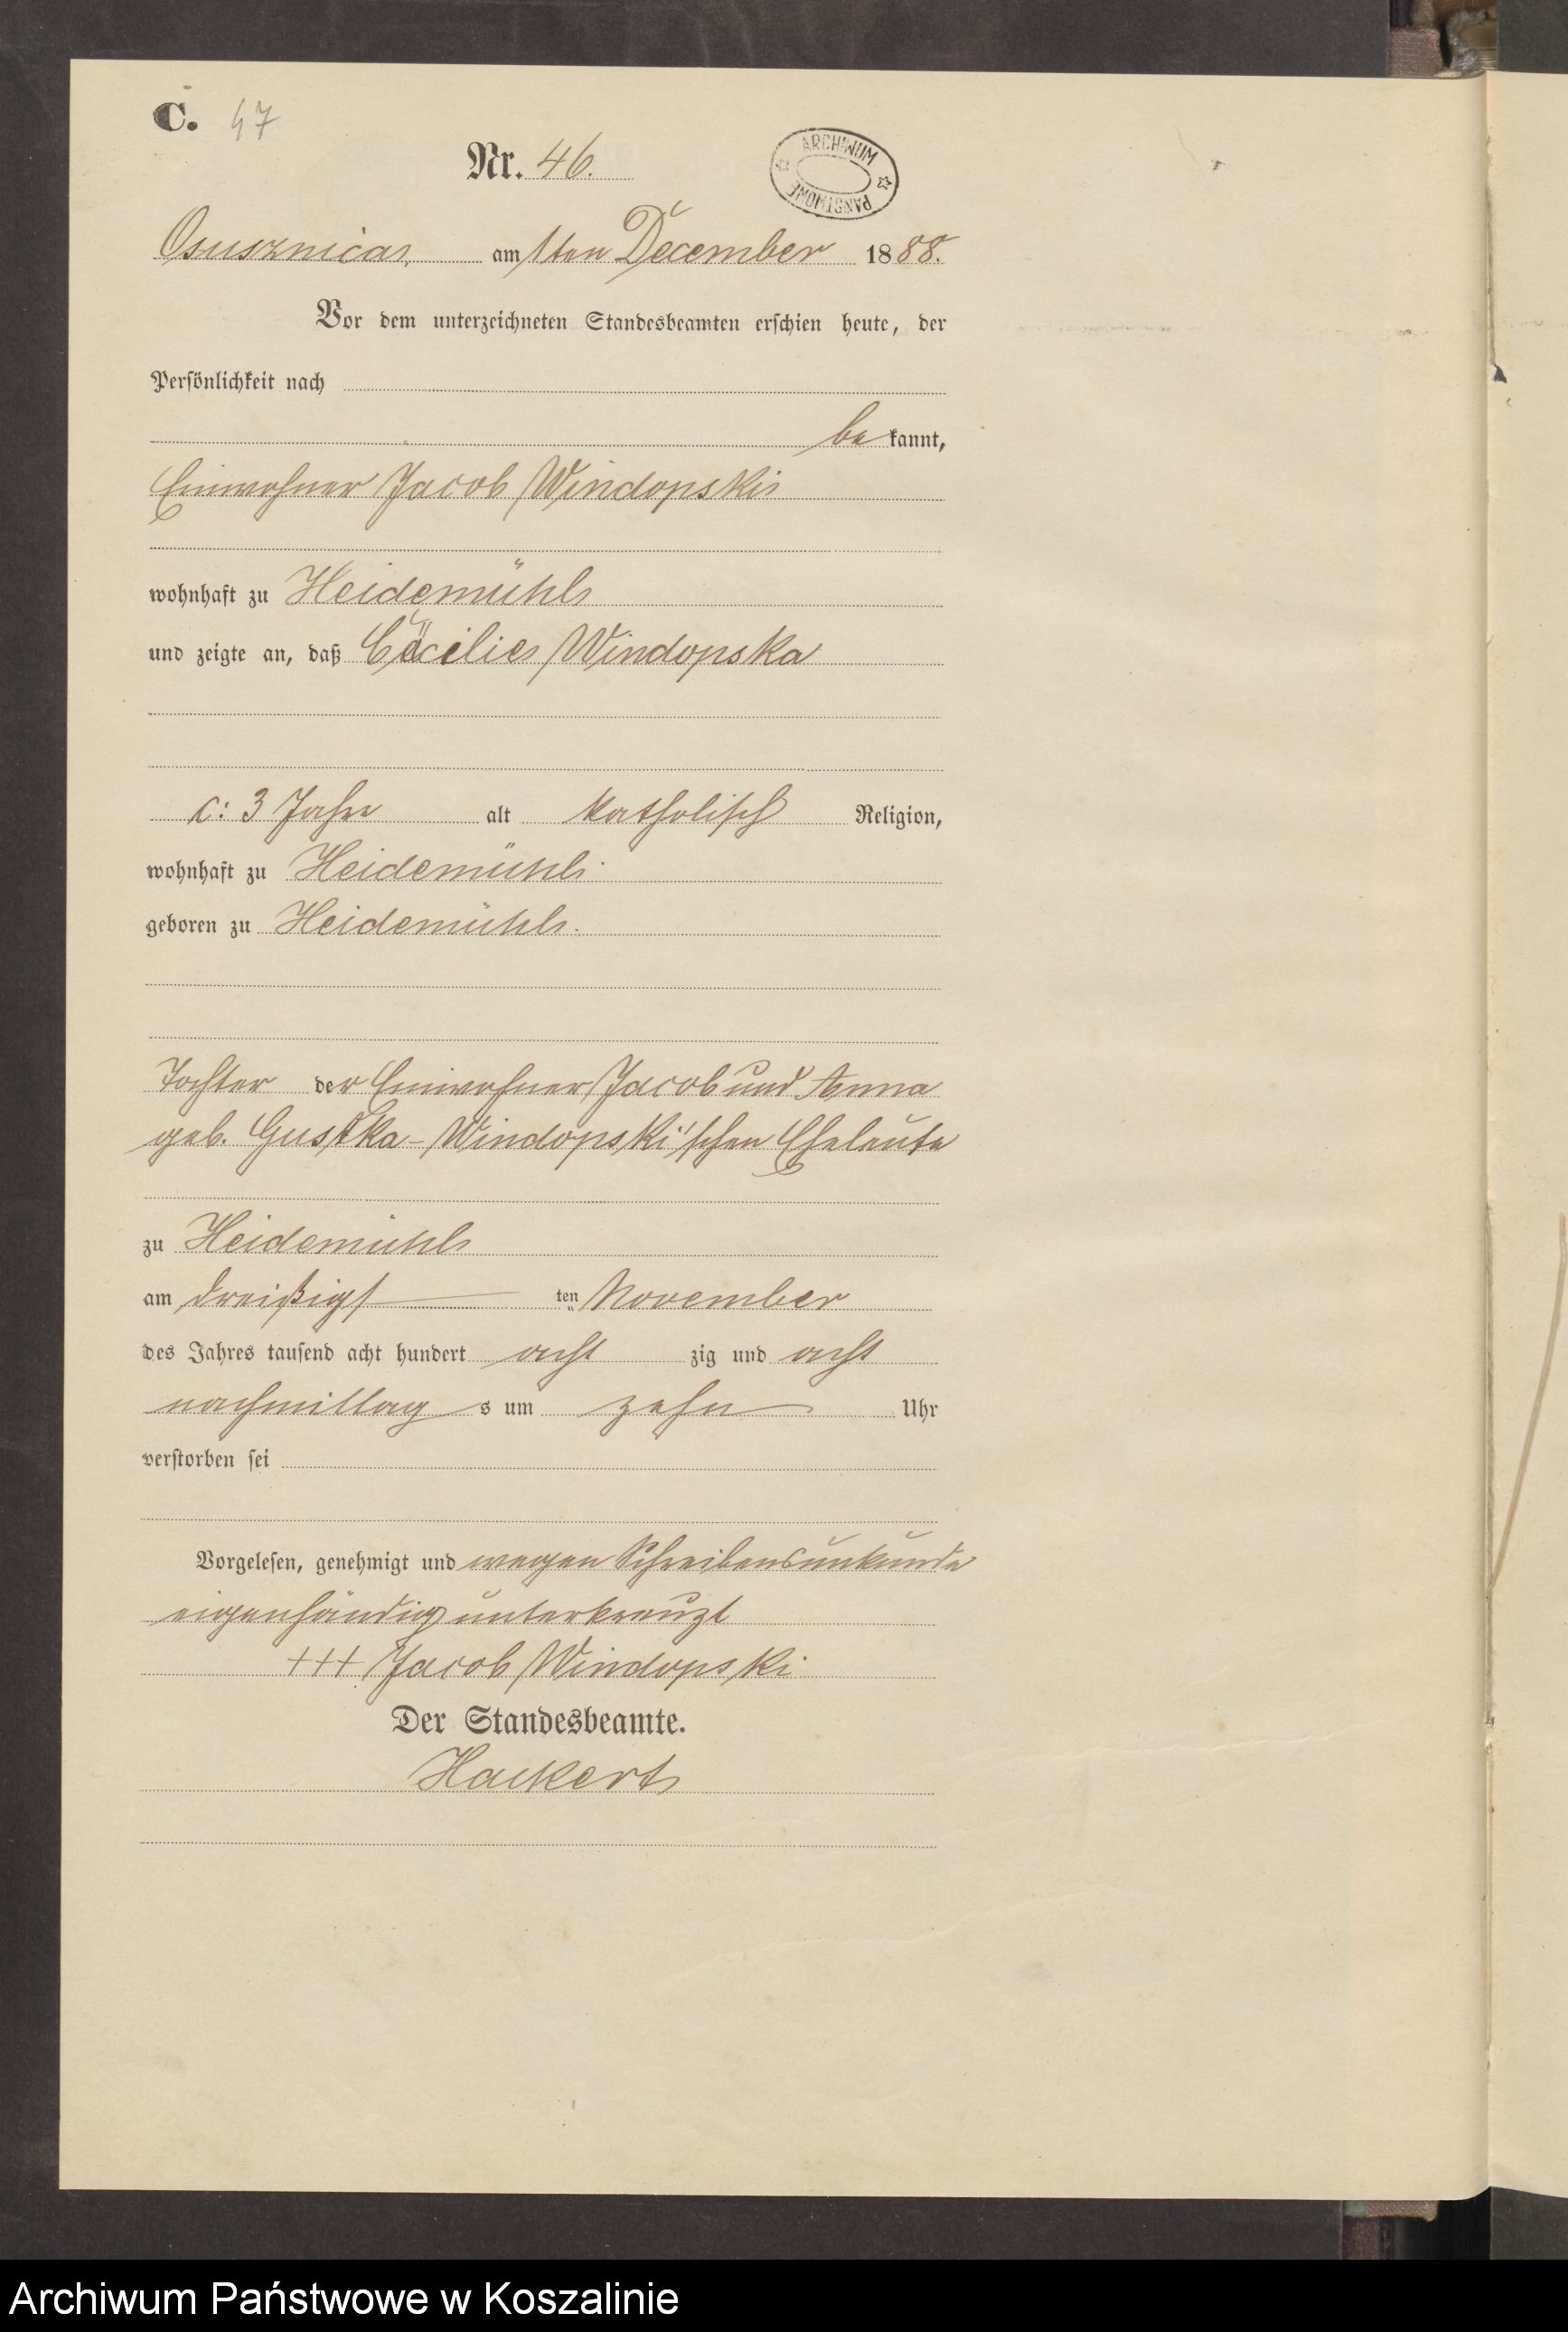 C. 47
Nr. 46.
ARCHIWUM PAŃSTWOWE
Osusznica, am 1ten December 1888.
Vor dem unterzeichneten Standesbeamten erschien heute, der
Persönlichkeit nach
be kannt,
Einwohner Jacob Windopski
wohnhaft zu Heidemühl
und zeigte an, daß Cäcilie Windopska
c: 3 Jahre alt katholisch Religion,
wohnhaft zu Heidemühl
geboren zu Heidemühl.
Tochter der Einwohner Jacob und Anna
geb. Gustka-Windopski'schen Eheleute
zu Heidemühl
am dreißigst ten November
des Jahres tausend acht hundert acht zig und acht
nachmittag s um zehn Uhr
verstorben sei
Vorgelesen, genehmigt und wegen Schreibensunkunde
eigenhändig unterkreuzt
+++ Jacob Windopski
Der Standesbeamte.
Hackert
Archiwum Państwowe w Koszalinie